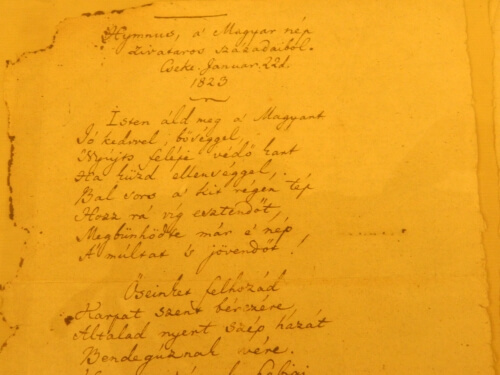 Hymnus, a' Magyar nép
zivataros századaiból.
Cseke. Januar. 22d.
1823
Isten áld meg a' Magyart
Jó kedvvel, bőséggel,
Nyújts feléje védő kart
Ha küzd ellenséggel,
Bal sors a' kit régen tép
Hozz rá víg esztendőt,
Megbűnhödte már e' nép
A' múltat 's jövendőt!
Őseinket felhozád
Karpat szent bérczére
Általad nyert szép hazát
Bendegúznak vére.